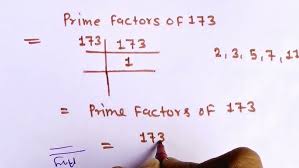 Prime Factors of 173
= 173 | 173
1
2, 3, 5, 7, 11
= Prime Factors of 173
= 173